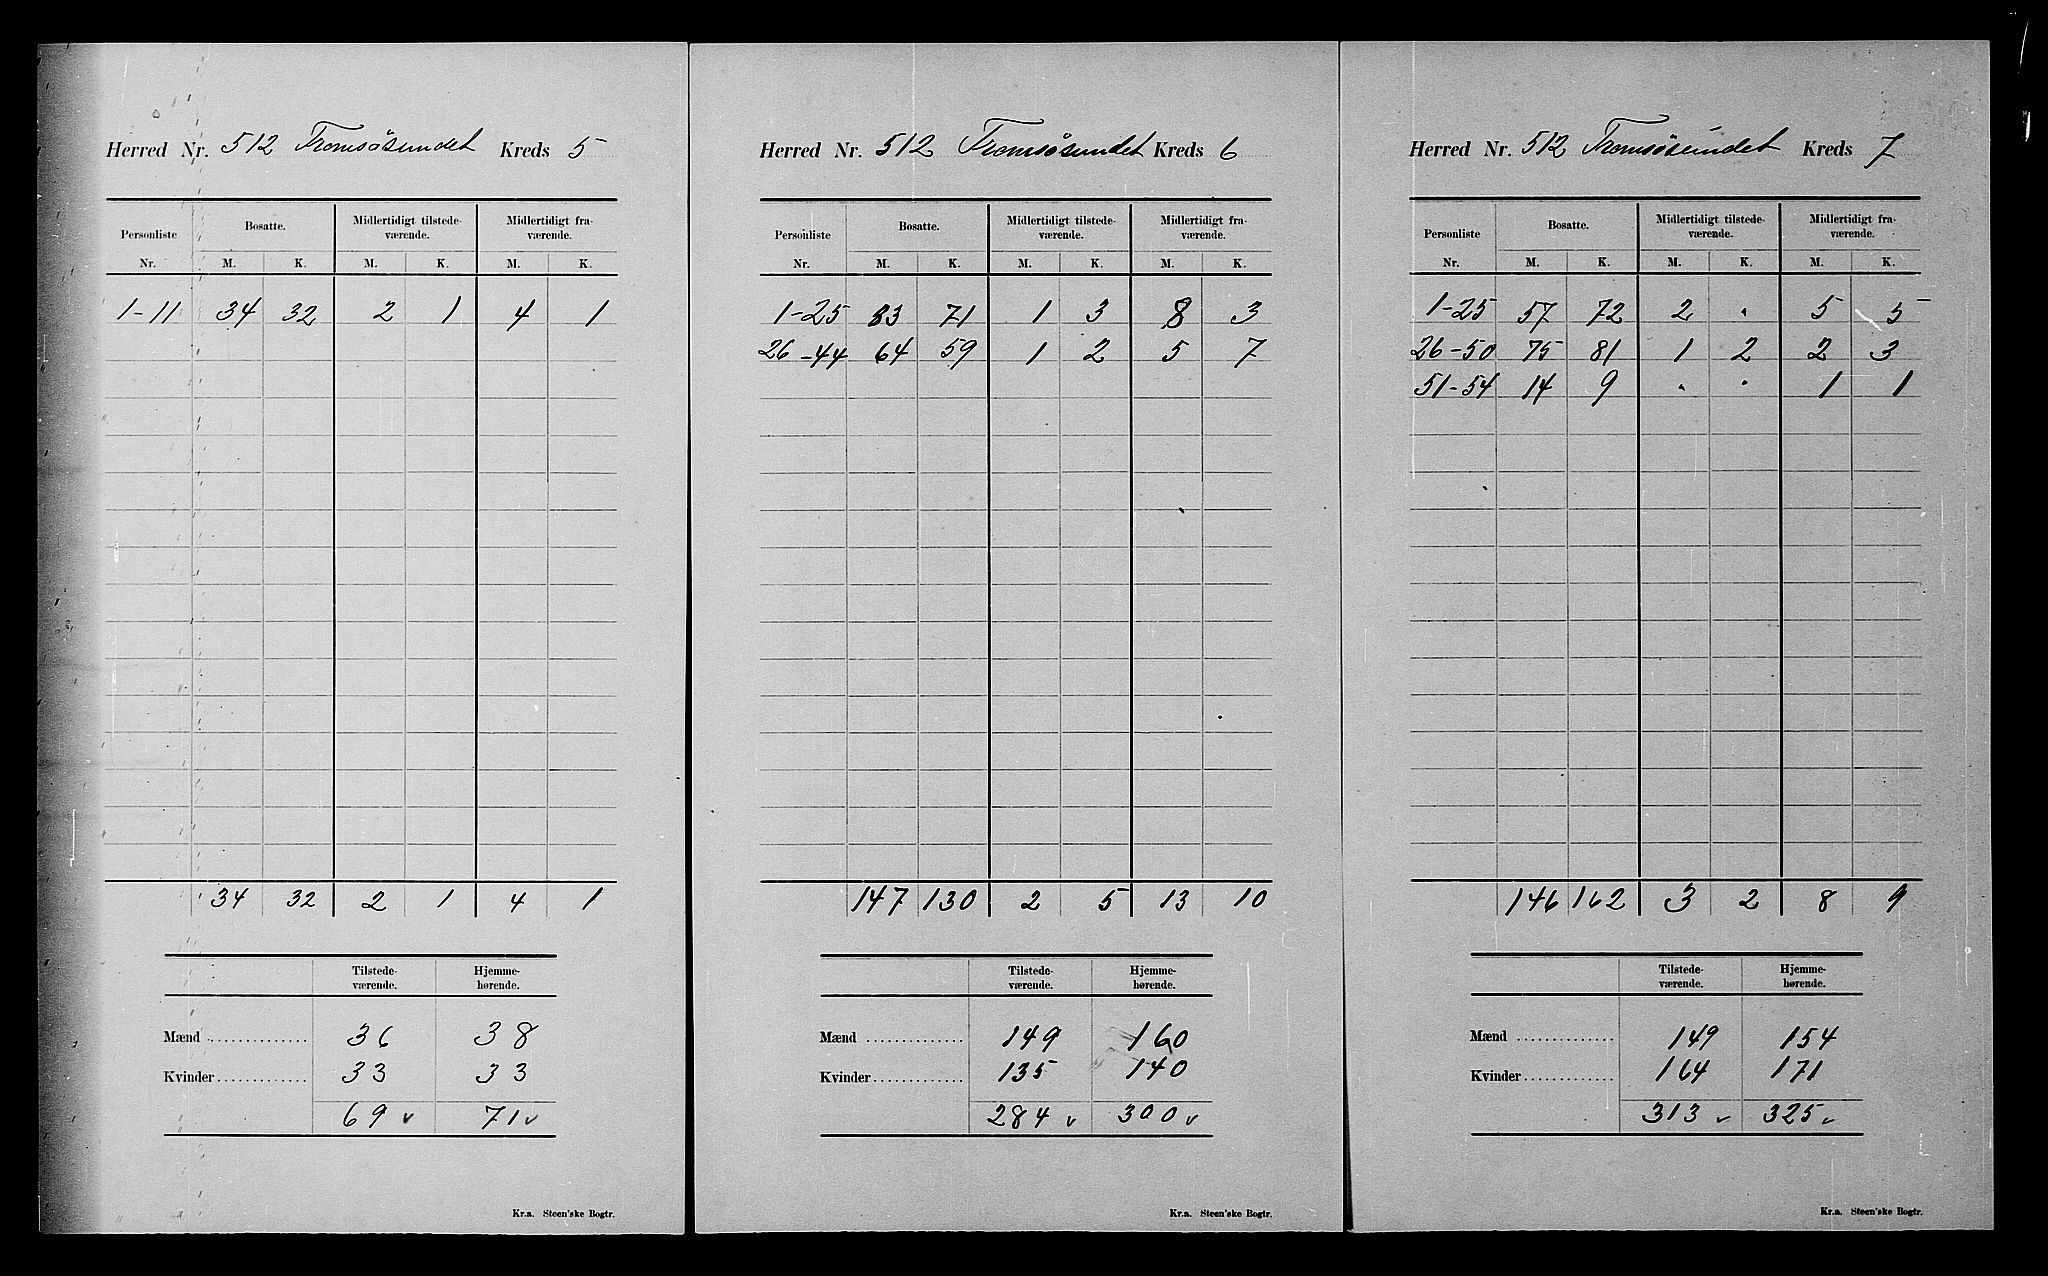 Herred Nr. 512 Tromsøsundet Kreds 5
Personliste Bosatte. Midlertidigt tilstede- Midlertidigt fra-
værende. værende.
Nr. M. K. M. K. M. K.
1-11 34 32 2 1 4 1
34 32 2 1 4 1
Tilstede- Hjemme-
værende. hørende.
Mænd 36 38
Kvinder 33 33
69 v 71 v
Kr.a. Steen'ske Bogtr.
Herred Nr. 512 Tromsøsundet Kreds 6
Personliste Bosatte. Midlertidigt tilstede- Midlertidigt fra-
værende. værende.
Nr. M. K. M. K. M. K.
1-25 83 71 1 3 8 3
26-44 64 59 1 2 5 7
147 130 2 5 13 10
Tilstede- Hjemme-
værende. hørende.
Mænd 149 160
Kvinder 135 140
284 v 300 v
Kr.a. Steen'ske Bogtr.
Herred Nr. 512 Tromsøsundet Kreds 7
Personliste Bosatte. Midlertidigt tilstede- Midlertidigt fra-
værende. værende.
Nr. M. K. M. K. M. K.
1-25 57 72 2 " 5 5
26-50 75 81 1 2 2 3
51-54 14 9 " " 1 1
146 162 3 2 8 9
Tilstede- Hjemme-
værende. hørende.
Mænd 149 154
Kvinder 164 171
313 v 325 v
Kr.a. Steen'ske Bogtr.